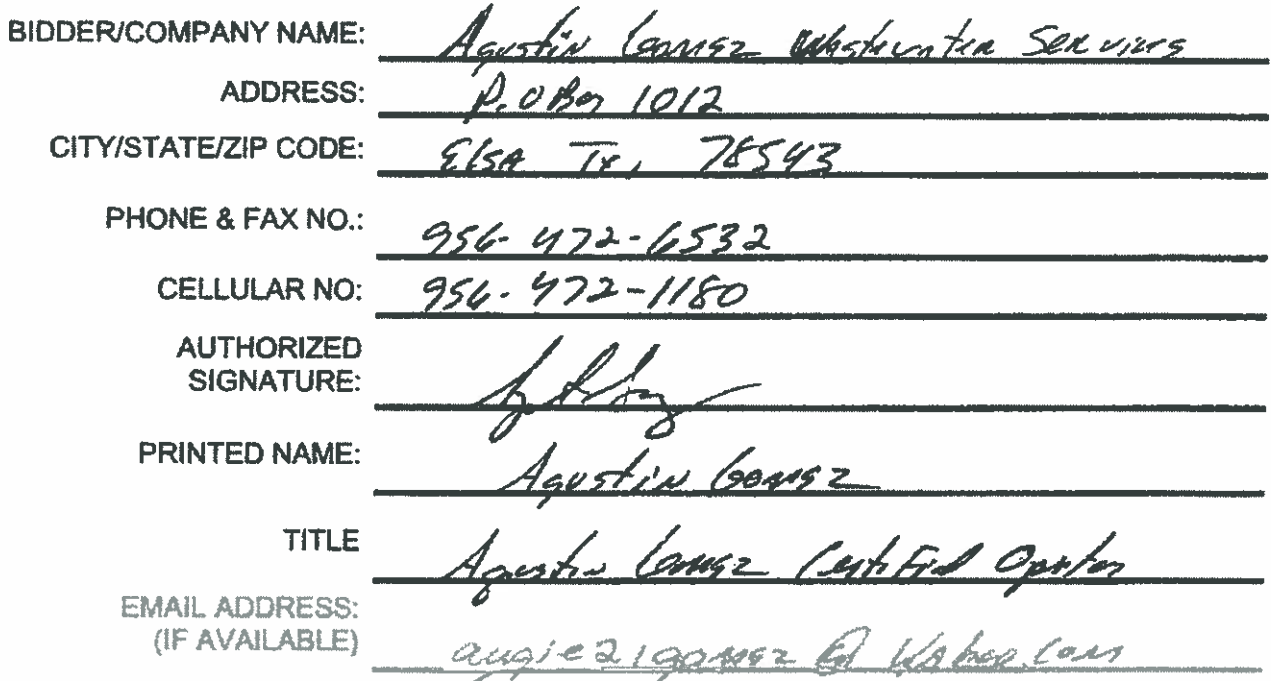 BIDDER/COMPANY NAME: Agustin Gomez Wastewater Services
ADDRESS: P.O Box 1012
CITY/STATE/ZIP CODE: Elsa Tx, 78543
PHONE & FAX NO.: 956-472-6532
CELLULAR NO: 956-472-1180
AUTHORIZED
SIGNATURE:
PRINTED NAME: Agustin Gomez
TITLE Agustin Gomez Certified Operator
EMAIL ADDRESS:
(IF AVAILABLE) augie21gomez@yahoo.com